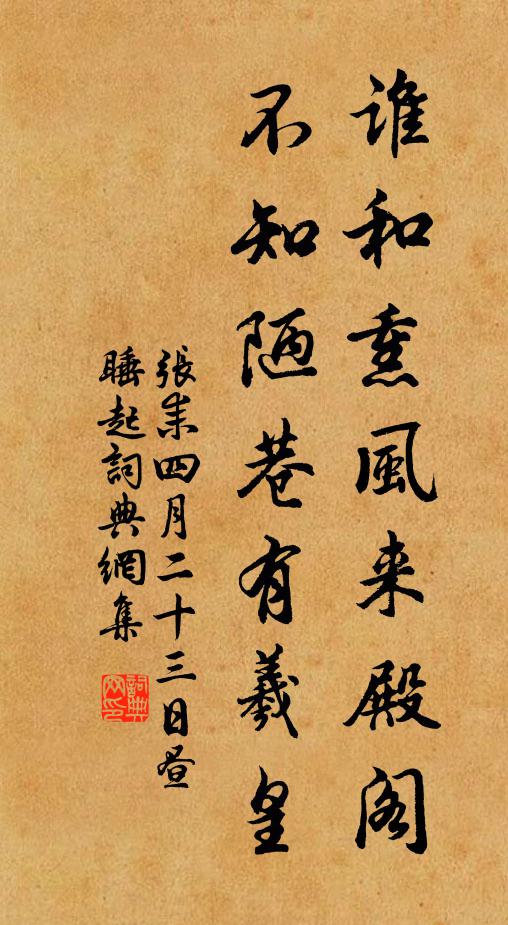 誰和熏風来殿阁
不知陋巷有羲皇
張耒四月二十三日昼
睡起詞典網集
詞典网印